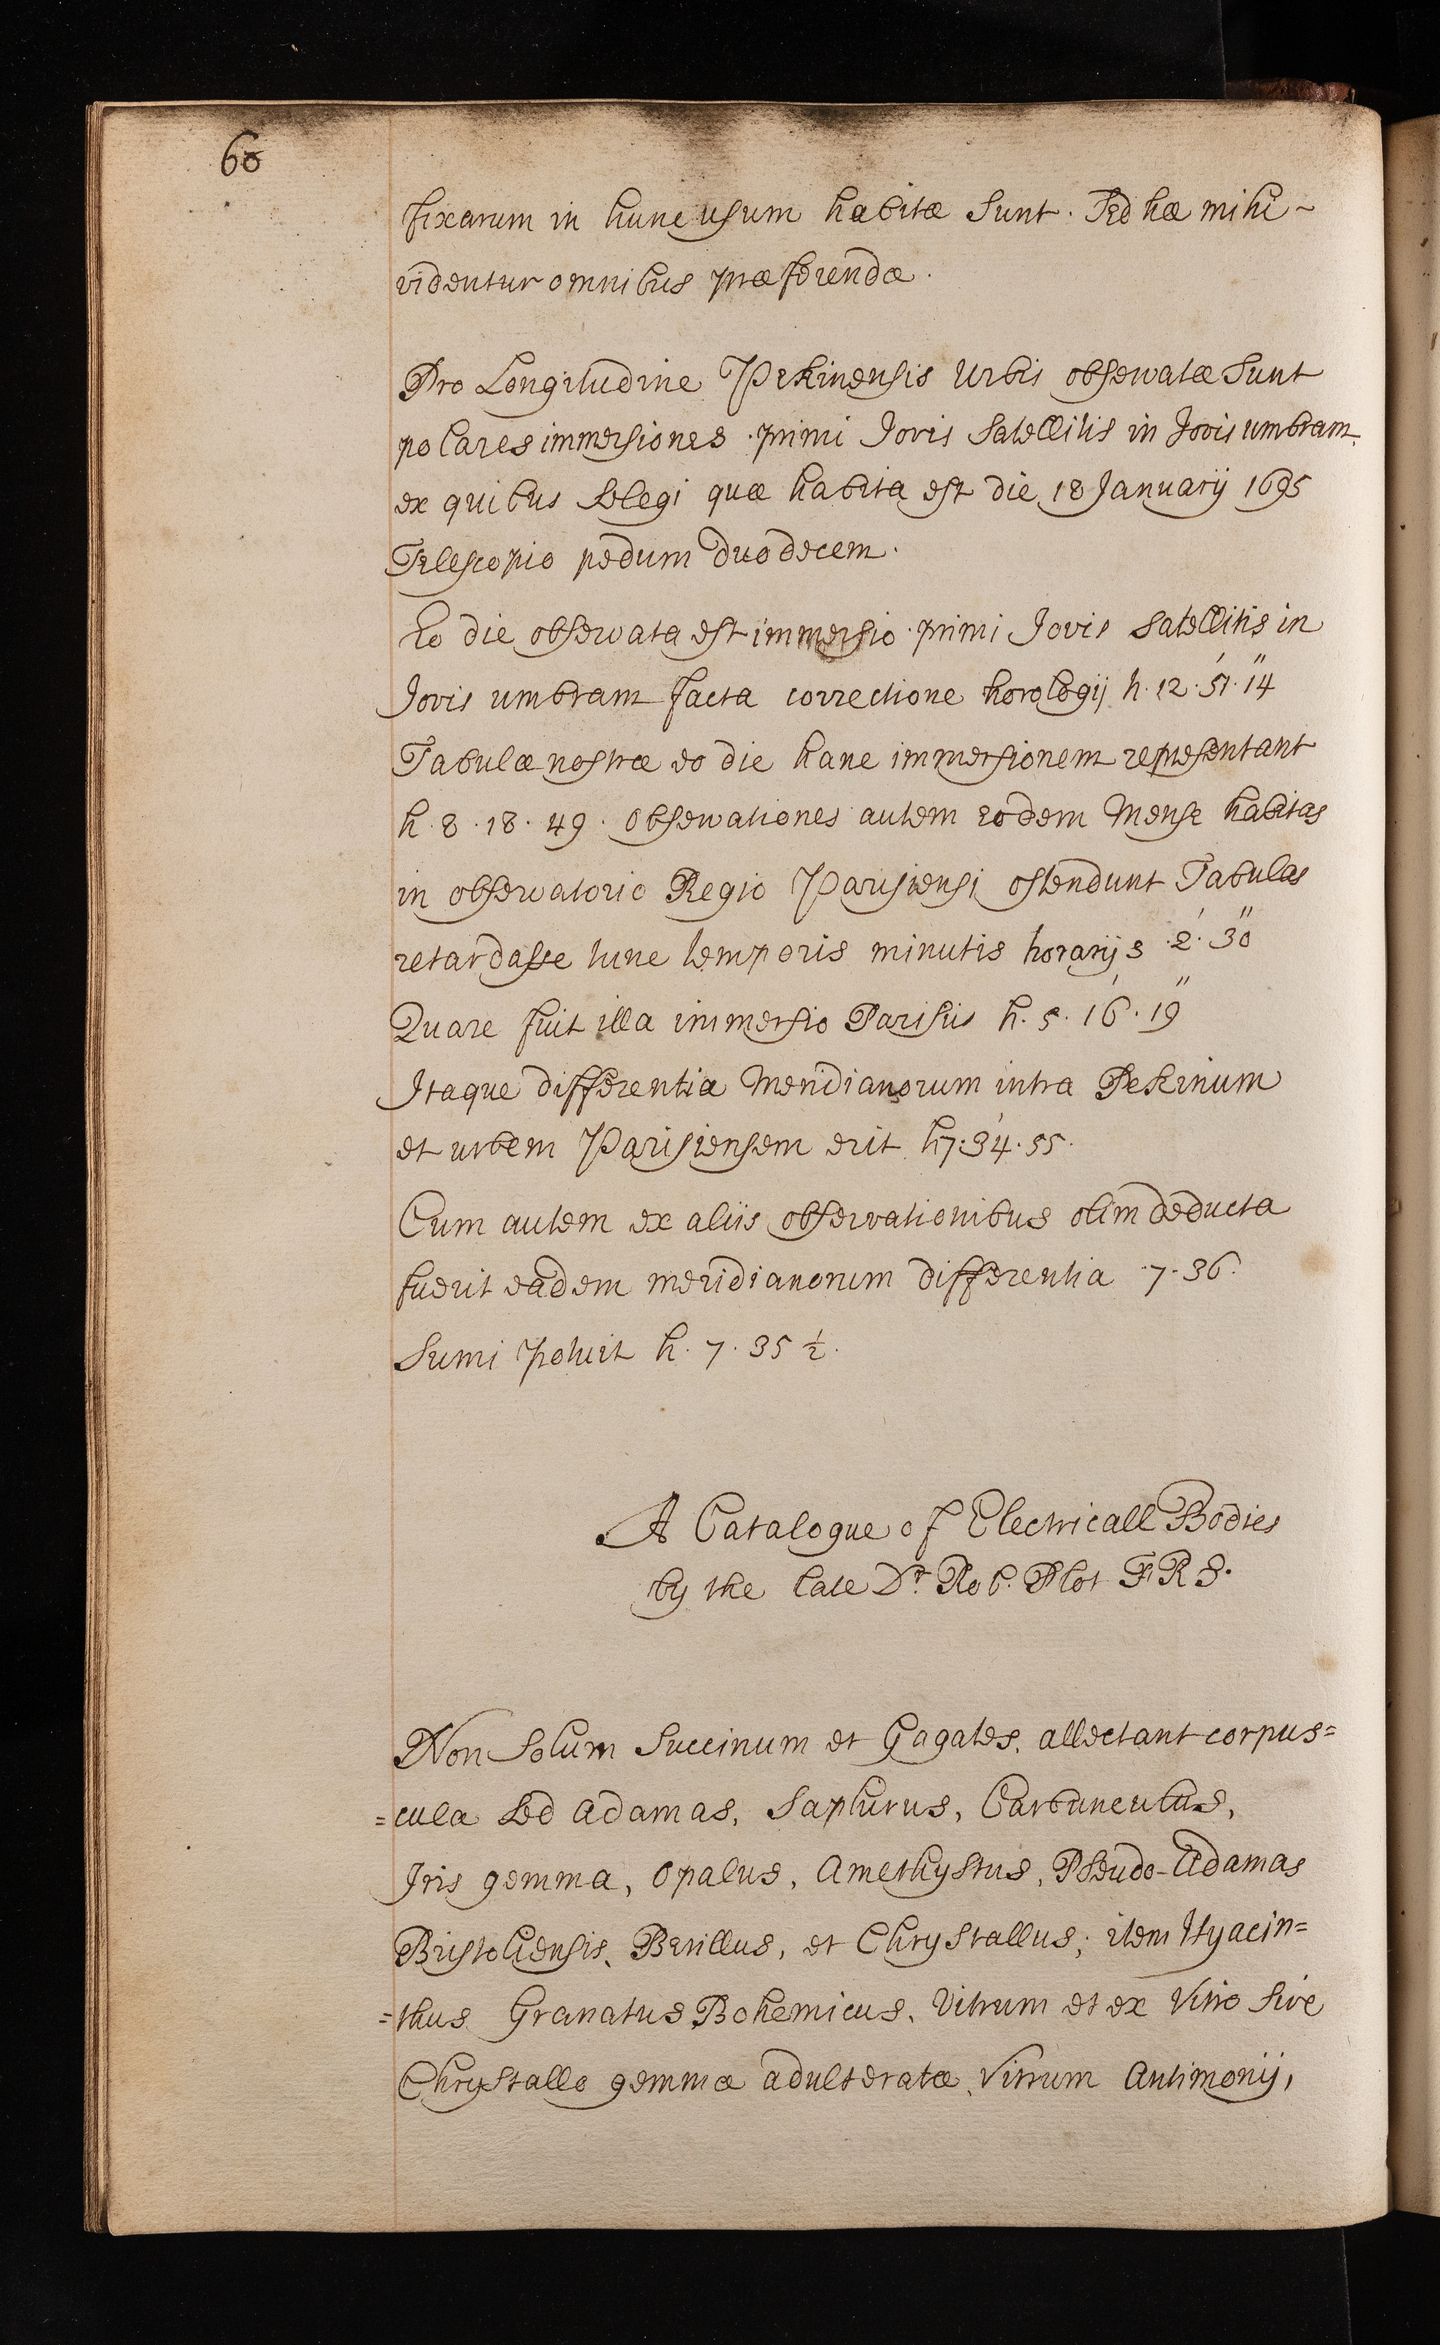 60
fixarum in hunc usum habitæ sunt. Sed hæ mihi ~
videntur omnibus præferendæ.
Pro Longitudine Pekinensis Urbis observatæ sunt
polares immersiones primi Jovis Satellitis in Jovis umbram
ex quibus selegi quæ habita est die 18 Januarij 1695
Telescopio pedum duodecem.
Eo die observata est immersio primi Jovis Satellitis in
Jovis umbram facta correctione horologij h. 12. 51.' 14"
Tabulæ nostræ eo die hanc immersionem repræsentant
h. 8. 18. 49. Observationes autem eodem Mense habitas
in observatorio Regio Parisiensi ostendunt Tabulas
retardasse tunc temporis minutis horarijs 2.' 30"
Quare fuit illa immersio Parisiis h. 5. 16.' 19"
Itaque differentia Meridianorum intra Pekinum
et urbem Parisiensem erit h 7. 34.' 55.
Cum autem ex aliis observationibus olim deducta
fuerit eadem meridianorum differentia 7. 36.
Sumi potuit h. 7. 35 ½.
A Catalogue of Electricall Bodies
by the late Dr. Rob. Plot F R S.
Non Solum Succinum et Gagates, allectant corpus=
=cula sed adamas, Saphirus, Carbunculus,
Iris gemma, Opalus, Amethystus, Pseudo-Adamas
Bristoliensis, Berillus, et Chrystallus; item Hyacin=
=thus Granatus Bohemicus, Vitrum et ex Vitro sive
Chrystallo gemmæ adulteratæ, Vitrum Antimonij,